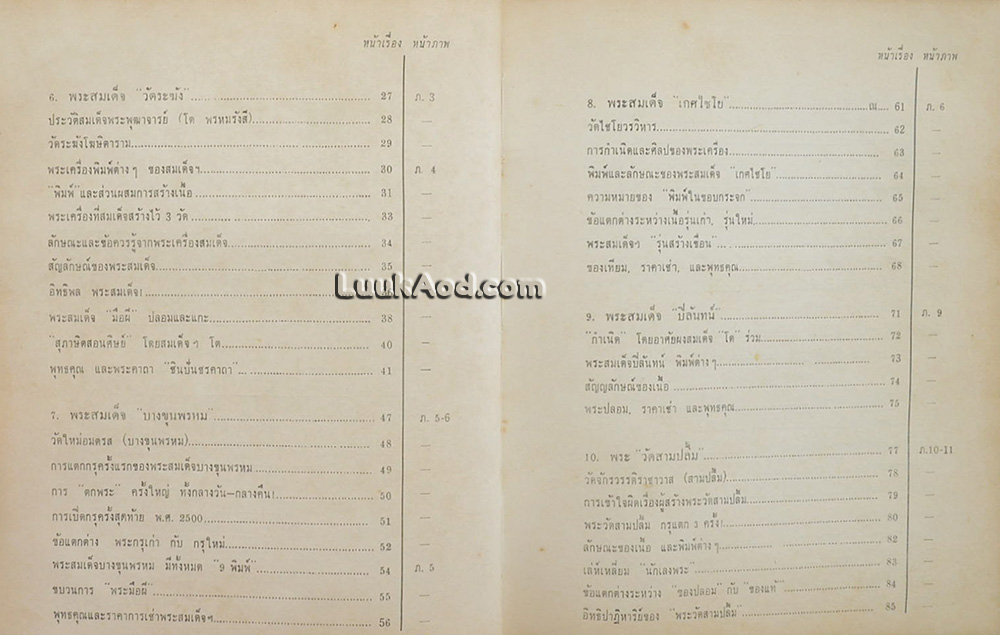 หน้าเรื่อง หน้าภาพ
6. พระสมเด็จ "วัดระฆัง" 27 ภ. 3
ประวัติสมเด็จพระพุฒาจารย์ (โต พรหมรังสี) 28 —
วัดระฆังโฆษิตาราม 29 —
พระเครื่องพิมพ์ต่างๆ ของสมเด็จฯ 30 ภ. 4
"พิมพ์" และส่วนผสมการสร้างเนื้อ 31 —
พระเครื่องที่สมเด็จสร้างไว้ 3 วัด 33 —
ลักษณะและข้อควรรู้จากพระเครื่องสมเด็จ 34 —
สัญลักษณ์ของพระสมเด็จ 35 —
อิทธิพล พระสมเด็จ!
LuukAod.com
พระสมเด็จ "มือผี" ปลอมและแกะ 38 —
"สุภาษิตสอนศิษย์" โดยสมเด็จฯ โต 40 —
พุทธคุณ และพระคาถา "ชินบัญชรคาถา" 41 —
7. พระสมเด็จ "บางขุนพรหม" 47 ภ. 5-6
วัดใหม่อมตรส (บางขุนพรหม) 48 —
การแตกกรุครั้งแรกของพระสมเด็จบางขุนพรหม 49 —
การ "ตกพระ" ครั้งใหญ่ ทั้งกลางวัน—กลางคืน! 50 —
การเปิดกรุครั้งสุดท้าย พ.ศ. 2500 51 —
ข้อแตกต่าง พระกรุเก่า กับ กรุใหม่ 52 —
พระสมเด็จบางขุนพรหม มีทั้งหมด "9 พิมพ์" 54 ภ. 5
ขบวนการ "พระมือผี" 55 —
พุทธคุณและราคาการเช่าพระสมเด็จฯ 56 —
หน้าเรื่อง หน้าภาพ
8. พระสมเด็จ "เกศไชโย" ณ 61 ภ. 6
วัดไชโยวรวิหาร 62 —
การกำเนิดและศิลปของพระเครื่อง 63 —
พิมพ์และลักษณะของพระสมเด็จ "เกศไชโย" 64 —
ความหมายของ "พิมพ์ในขอบกระจก" 65 —
ข้อแตกต่างระหว่างเนื้อรุ่นเก่า, รุ่นใหม่ 66 —
พระสมเด็จฯ "รุ่นสร้างเขื่อน" 67 —
ของเทียม, ราคาเช่า, และพุทธคุณ 68 —
9. พระสมเด็จ "ปิลันทน์" 71 ภ. 9
"กำเนิด" โดยอาศัยผงสมเด็จ "โต" ร่วม 72 —
พระสมเด็จปิลันทน์ พิมพ์ต่างๆ 73 —
สัญญลักษณ์ของเนื้อ 74 —
พระปลอม, ราคาเช่า และพุทธคุณ 75 —
10. พระ "วัดสามปลื้ม" 77 ภ.10-11
วัดจักรวรรดิราชาวาส (สามปลื้ม) 78 —
การเข้าใจผิดเรื่องผู้สร้างพระวัดสามปลื้ม 79 —
พระวัดสามปลื้ม กรุแตก 3 ครั้ง! 80 —
ลักษณะของเนื้อ และพิมพ์ต่างๆ 82 —
เล่ห์เหลี่ยม "นักเลงพระ" 83 —
ข้อแตกต่างระหว่าง "ของปลอม" กับ "ของแท้" 84 —
อิทธิปาฏิหาริย์ของ "พระวัดสามปลื้ม" 85 —